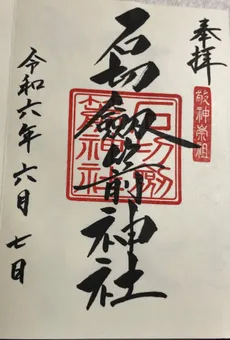 奉拝
敬神崇祖
石切劔箭神社
石切劔箭神社
令和六年六月七日